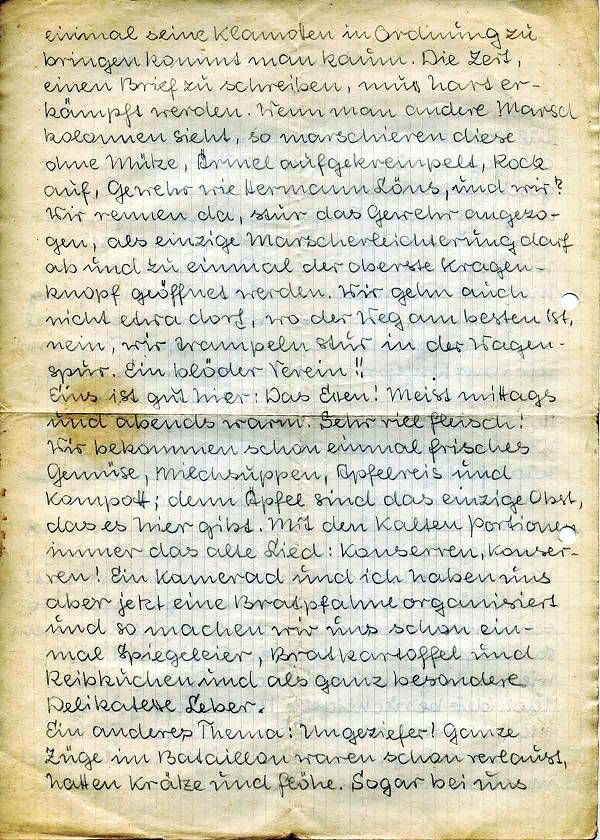 einmal seine Klamoten in Ordnung zu
bringen kommt man kaum. Die Zeit,
einen Brief zu schreiben, mus hart er-
kämpft werden. Wenn man andere Marsch
kolonnen sieht, so marschieren diese
ohne Mütze, Ärmel aufgekrempelt, Rock
auf, Gewehr wie Hermann Löns, und wir?
Wir rennen da, stur das Gewehr angezo-
gen, als einzige Marscherleichterung darf
ab und zu einmal der oberste Kragen-
knopf geöffnet werden. Wir gehn auch
nicht etwa dorf, wo der Weg am besten ist,
nein, wir trampeln stur in der Wagen-
spur. Ein blöder Verein!!
Eins ist gut hier: Das Essen! Meist mittags
und abends warm. Sehr viel fleisch!
Wir bekommen schon einmal frisches
Gemüse, Milchsuppen, Apfelreis und
Kompott; denn Äpfel sind das einzige Obst,
das es hier gibt. Mit den Kalten Portionen
immer das alte Lied: Konserven, Konser-
ven! Ein Kamerad und ich haben uns
aber jetzt eine Bratpfahne organisiert
und so machen wir uns schon ein-
mal Spiegeleier, Bratkartoffel und
Reibkuchen und als ganz besondere
Delikatesse Leber.
Ein anderes Thema: Ungeziefer! Ganze
Züge im Bataillon waren schon verlaust,
hatten Krätze und flöhe. Sogar bei uns